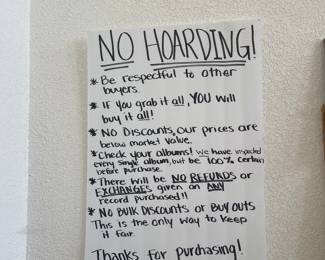 NO HOARDING!
* Be respectful to other
buyers.
* If you grab it all, YOU will
buy it all!
* NO Discounts, our prices are
below market value.
* Check your albums! We have inspected
every single album, but be 100% certain
before purchase.
* There will be NO REFUNDS or
EXCHANGES given on ANY
record purchased!!
* NO BULK DISCOUNTS OR BUY OUTS
This is the only way to keep
it fair.
Thanks for purchasing!